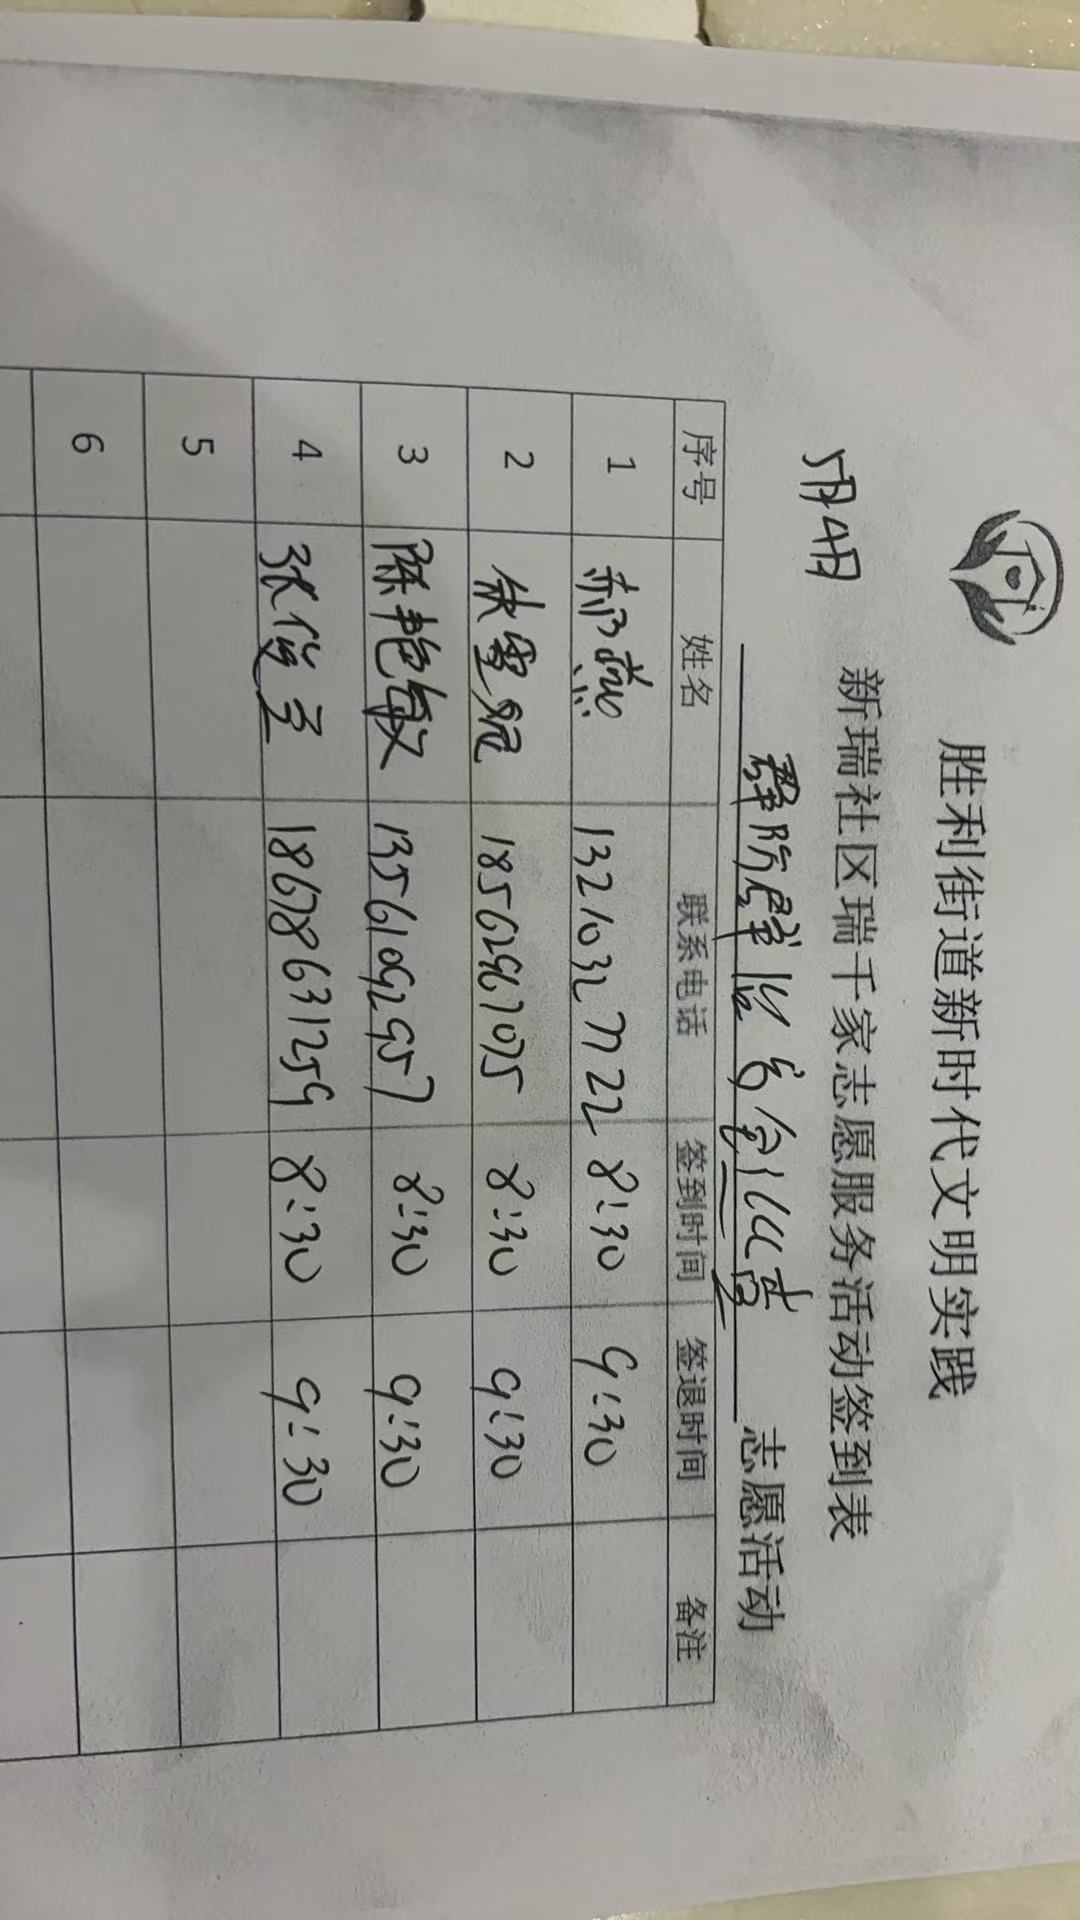 胜利街道新时代文明实践
新瑞社区瑞千家志愿服务活动签到表
5月4日
志愿活动
序号 姓名 联系电话 签到时间 签退时间 备注
1 郝燕 13210327722 8:30 9:30
2 18562967075 8:30 9:30
3 陈艳敏 13561092957 8:30 9:30
4 18678631259 8:30 9:30
5
6